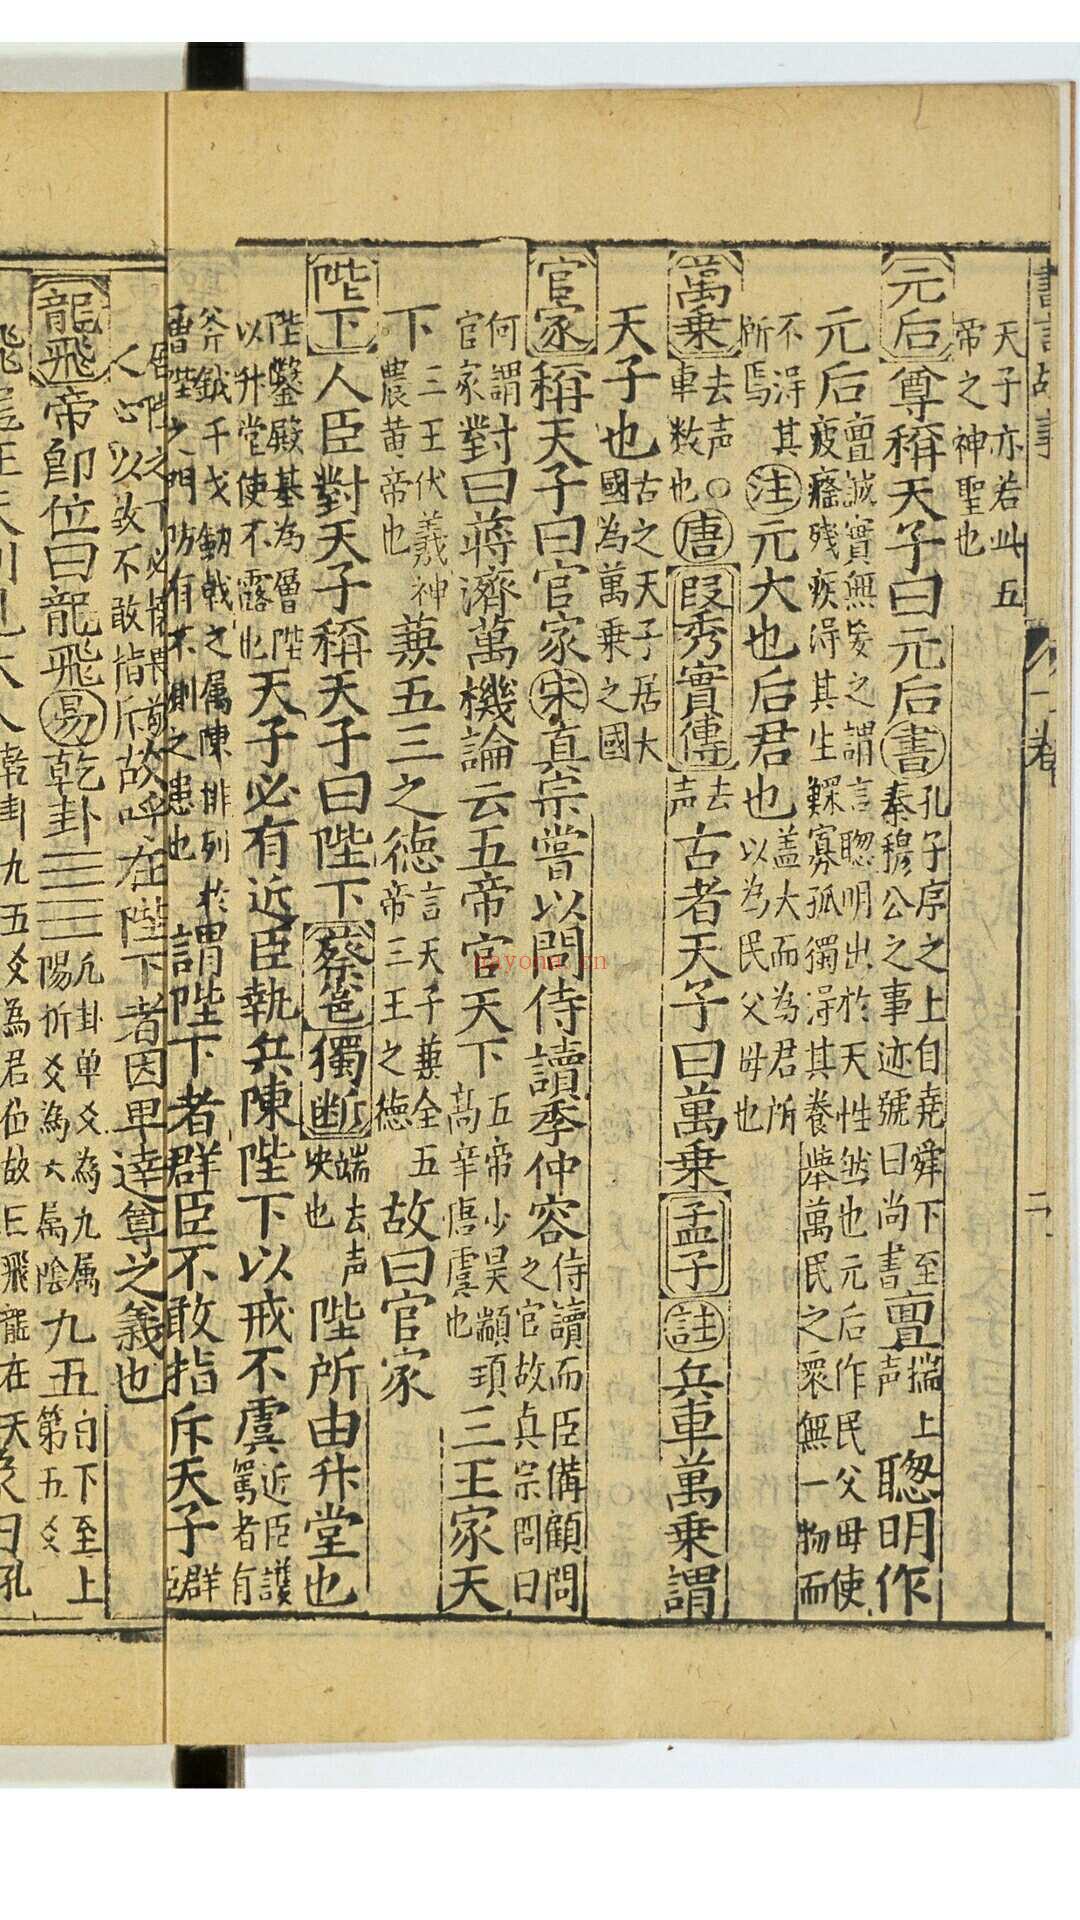 書言故事 一卷 二
天子亦若此五
帝之神聖也
元后尊稱天子曰元后書
孔子序之上自堯舜下至
秦穆公之事迹號曰尚書
亶
揣上
声
聰明作
元后
亶誠實無妄之謂言聰明出於天性然也元后作民父毋使
疲癃殘疾淂其生鰥寡孤獨淂其養举萬民之衆無一物而
不淂其
所焉
注元大也后君也
盖大而為君所
以為民父毋也
萬乗
去声○
車数也
唐段秀實傳
去
声
古者天子曰萬乗孟子註兵車萬乗謂
天子也
古之天子居大
國為萬乗之國
官家稱天子曰官家宋真宗嘗以問侍讀季仲容
侍讀而臣備顧問
之官故真宗問曰
何謂
官家
對曰蒋濟萬機論云五帝官天下
五帝少昊顓頊
高辛唐虞也
三王家天
下
三王伏羲神
農黄帝也
蒹五三之徳
言天子蒹全五
帝三王之徳
故曰官家
陛下人臣對天子稱天子曰陛下蔡邕獨断
端去声
决也
陛所由升堂也
陛鑿殿基為層陛
以升堂使不露也
天子必有近臣執兵陳陛下以戒不虞
近臣護
駕者有
斧鉞千戈剱戟之属陳排列於
曾陛之門防有不測之患也
謂陛下者群臣不敢指斥天子
群
臣
居陛之下必
人心以致不敢指斥
故呼在陛下者因卑逹尊之義也
龍飛帝即位曰龍飛易乾卦☰☰
凡卦单爻為九属
陽折爻為六属陰
九五
自下至上
第五爻
乾卦九五爻為君位故曰飛龍在天